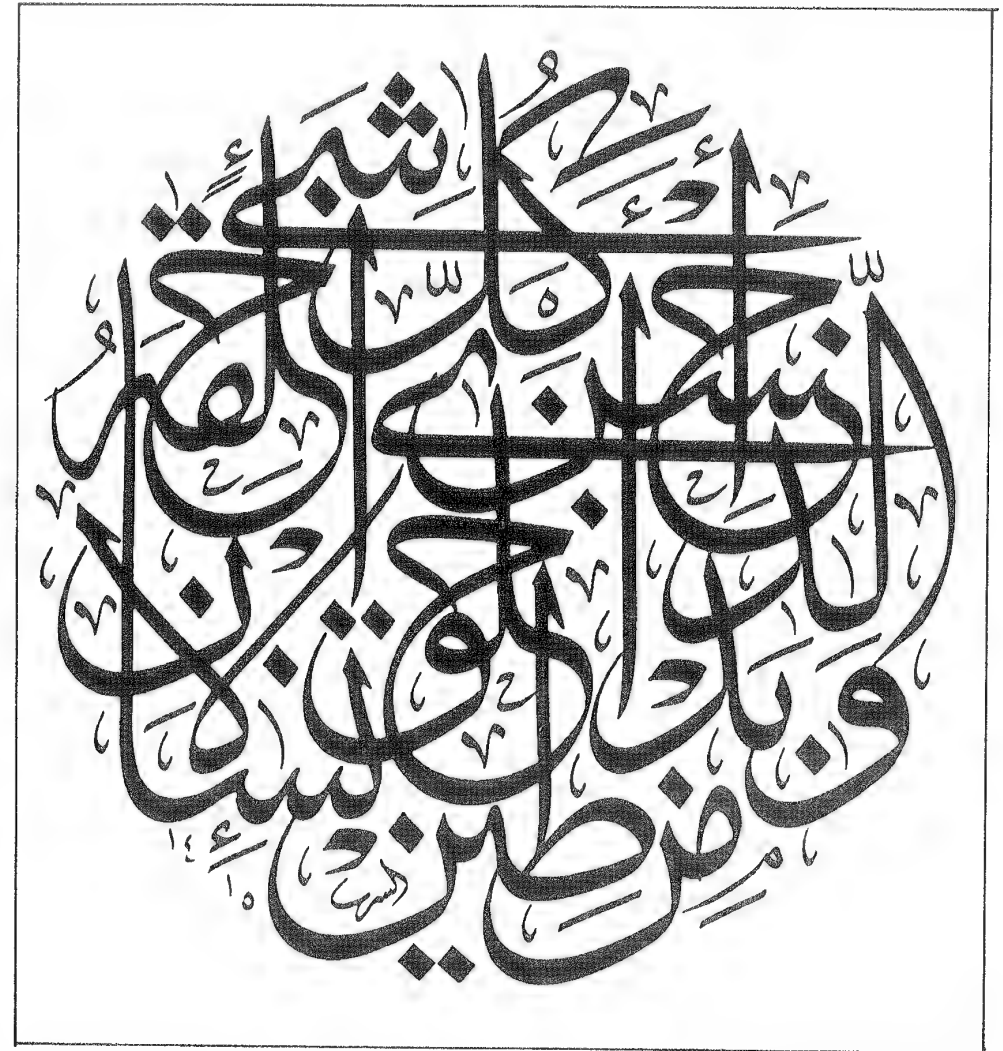 الَّذِي أَحْسَنَ كُلَّ شَيْءٍ خَلَقَهُ وَبَدَأَ خَلْقَ الْإِنْسَانِ مِنْ طِينٍ
١٤١٥